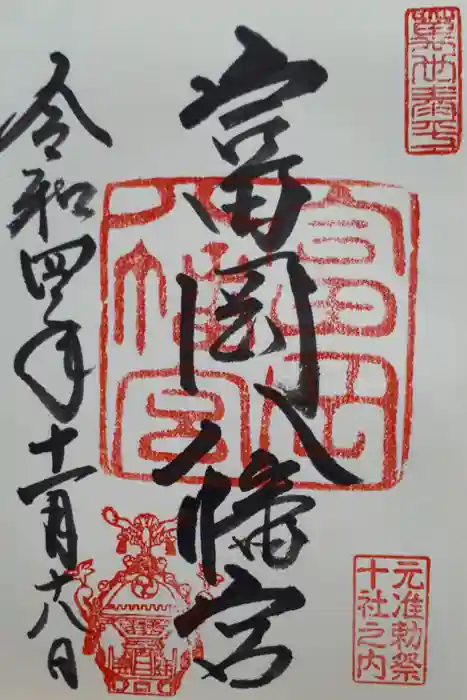 萬世泰平
富岡八幡宮
富岡八幡宮
元准勅祭
十社之内
令和四年十一月十八日